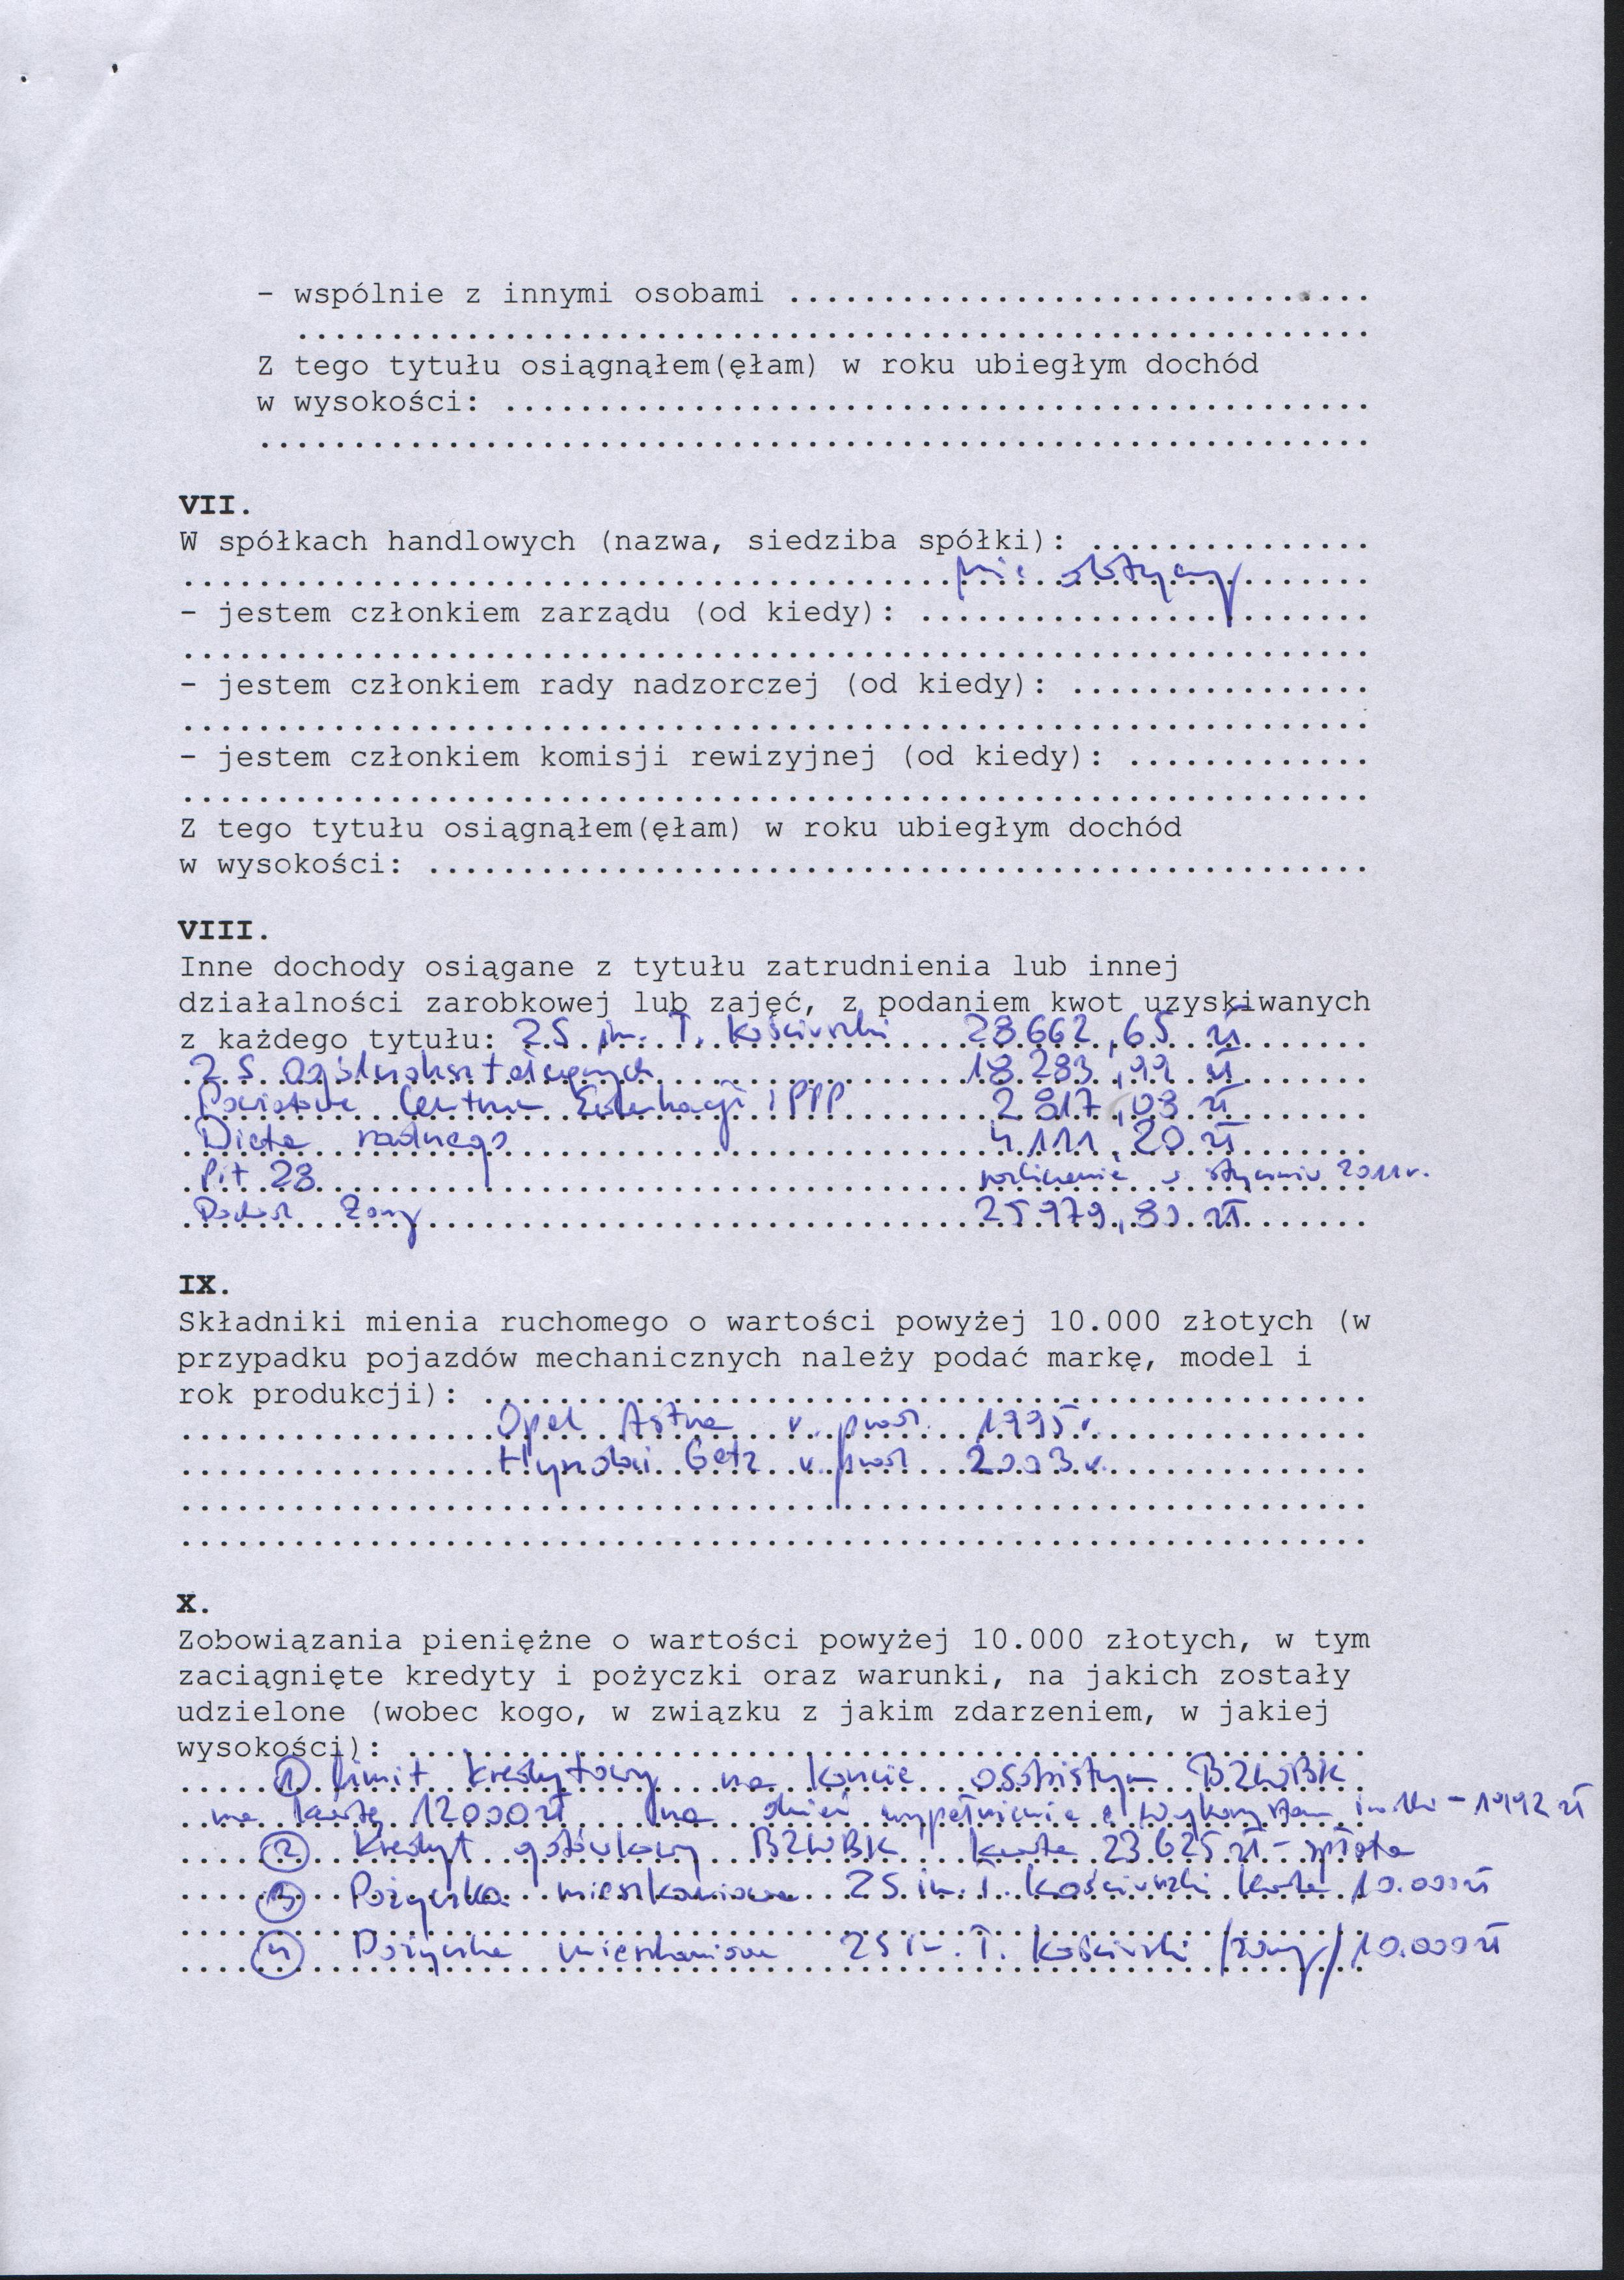 - wspólnie z innymi osobami ...............................
.........................................................
Z tego tytułu osiągnąłem(ęłam) w roku ubiegłym dochód
w wysokości: ..............................................
...........................................................
VII.
W spółkach handlowych (nazwa, siedziba spółki): ...............
nie dotyczy
- jestem członkiem zarządu (od kiedy): ........................
...............................................................
- jestem członkiem rady nadzorczej (od kiedy): ................
...............................................................
- jestem członkiem komisji rewizyjnej (od kiedy): .............
...............................................................
Z tego tytułu osiągnąłem(ęłam) w roku ubiegłym dochód
w wysokości: ..................................................
VIII.
Inne dochody osiągane z tytułu zatrudnienia lub innej
działalności zarobkowej lub zajęć, z podaniem kwot uzyskiwanych
z każdego tytułu: ZS im. T. Kościuszki 28 662,65 zł
ZS Ogólnokształcących 18 283,99 zł
Powiatowe Centrum Edukacji i PPP 2 817,08 zł
Dieta radnego 4 111,20 zł
Pit 28 rozliczenie w styczniu 2011 r.
Dochód żony 25 979,80 zł
IX.
Składniki mienia ruchomego o wartości powyżej 10.000 złotych (w
przypadku pojazdów mechanicznych należy podać markę, model i
rok produkcji): ...............................................
Opel Astra r. prod. 1995 r.
Hyundai Getz r. prod 2003 r.
...............................................................
...............................................................
X.
Zobowiązania pieniężne o wartości powyżej 10.000 złotych, w tym
zaciągnięte kredyty i pożyczki oraz warunki, na jakich zostały
udzielone (wobec kogo, w związku z jakim zdarzeniem, w jakiej
wysokości): ...................................................
1) limit kredytowy na koncie osobistym BZWBK
na kwotę 12000 zł, na dzień wypełnienia - 1992 zł
2) Kredyt gotówkowy BZWBK kwota 23 625 zł - spłata
3) Pożyczka mieszkaniowa ZS im. T. Kościuszki kwota 10.000 zł
4) Pożyczka mieszkaniowa ZS im. T. Kościuszki /żony/ 10.000 zł